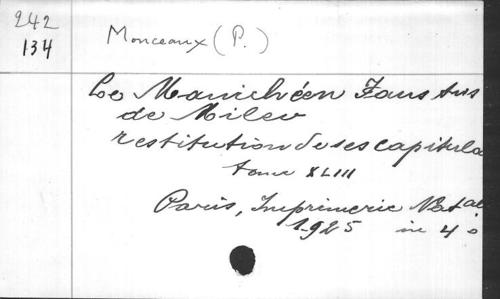 242
134
Monceaux (P.)
Le Manichéen Faustus
de Milev
restitution de ses capitula
tome XLIII
Paris, Imprimerie Natale
1925 in 4o